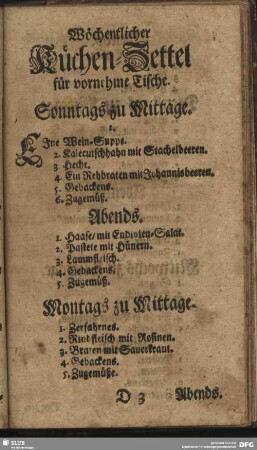 Wöchentlicher
Küchen-Zettel
für vornehme Tische.
Sonntags zu Mittage.
1.
EJne Wein-Supps.
2. Kalecutschhahn mit Stachelbeeren.
3. Hecht.
4. Ein Rehbraten mit Johannisbeeren.
5. Gebackens.
6. Zugemüß.
Abends.
1. Haase/ mit Endivien-Salat.
2. Pastete mit Hünern.
3. Lammfleisch.
4. Gebackens.
5. Zugemüß.
Montags zu Mittage.
1. Zerfahrnes.
2. Rindfleisch mit Rosinen.
3. Braten mit Sauerkraut.
4. Gebackens.
5. Zugemüße.
D 3 Abends.
SLUB
DFG